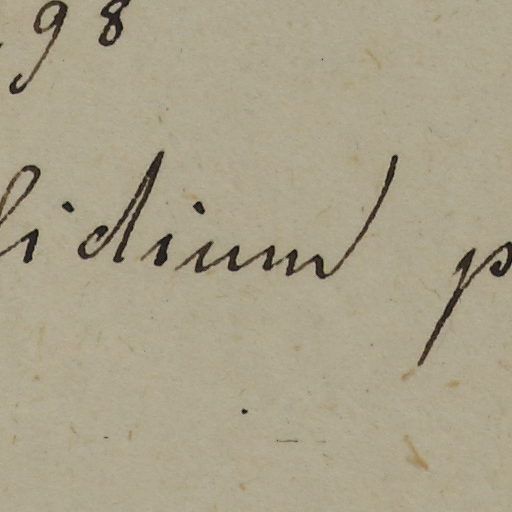 98
lidium p